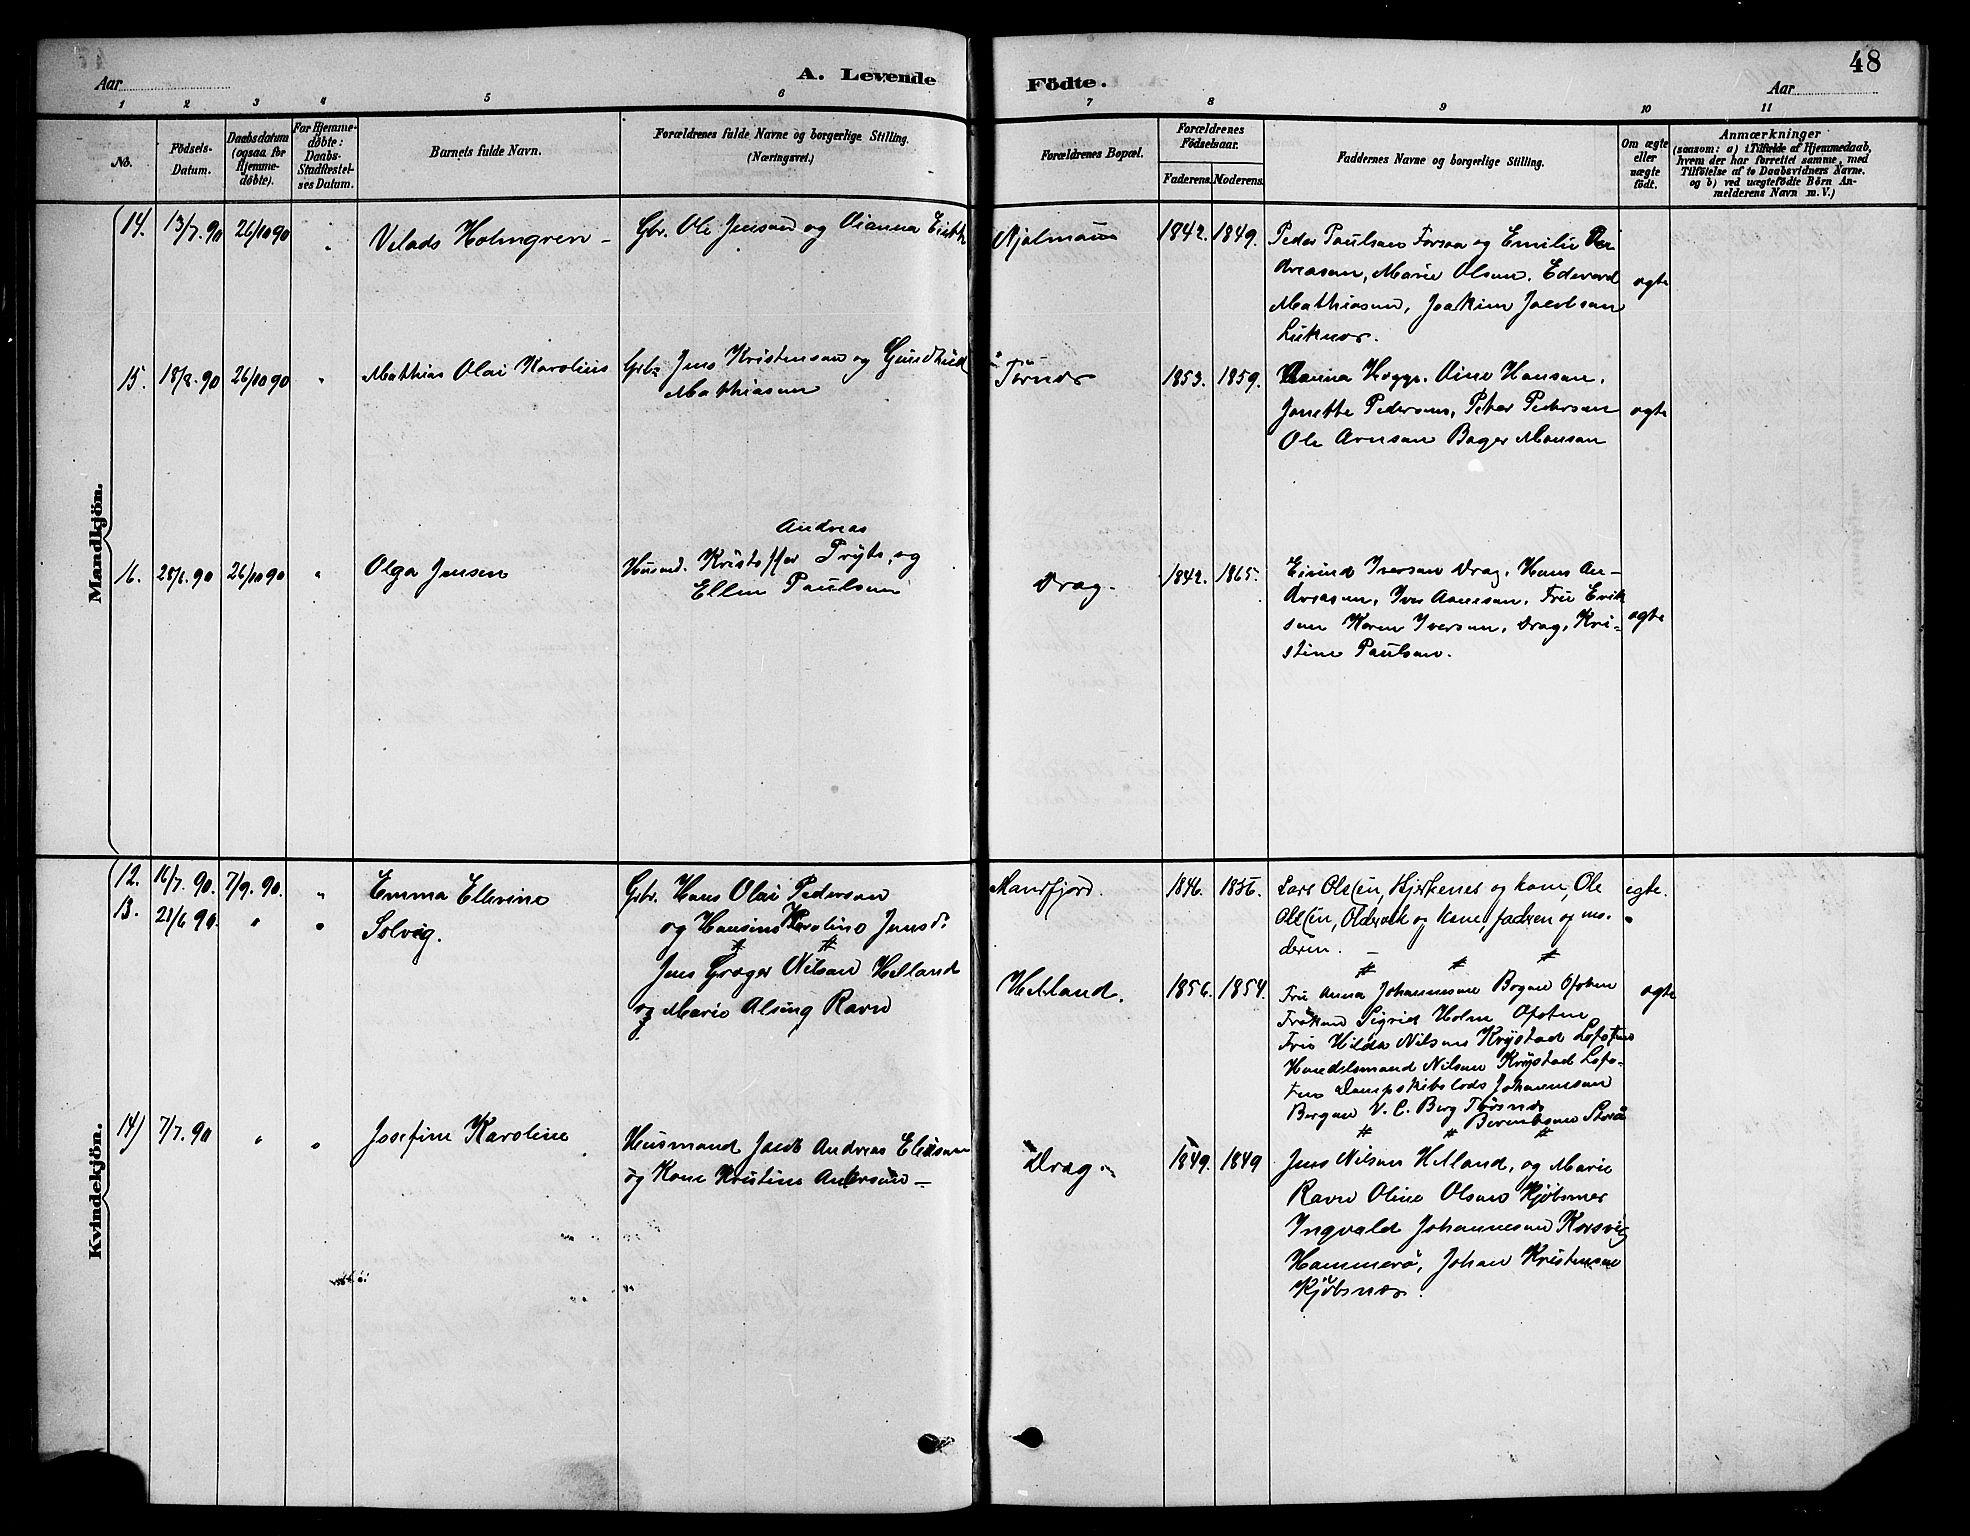 48
Aar
A. Levende
Födte.
Aar
1 2 3 4 5 6 7 8 9 10 11
No.
Födsels-
Datum.
Daabsdatum
(ogsaa for
Hjemme-
døbte).
For Hjemme-
døbte:
Daabs-
Stadfæstel-
ses Datum.
Barnets fulde Navn.
Forældrenes fulde Navne og borgerlige Stilling.
(Næringsvei.)
Forældrenes Bopæl.
Forældrenes
Fødselsaar.
Faderens. Moderens.
Faddernes Navne og borgerlige Stilling.
Om ægte
eller
uægte
født.
Anmærkninger
(saasom: a) i Tilfælde af Hjemmedaab,
hvem der har forrettet samme, med
Tilföielse af to Daabsvidners Navne.
og b) ved uægtefödte Börn An-
melderens Navn m. V.)
Mandkjön.
14. 13/7. 90 26/10 90 "
Velads Holmgren -
Gbr. Ole Jensen og Dianna Erikk
1842. 1849.
Peder Paulsen Forsaa og Emilie An
dreasen, Marie Olsen. Edevard
Mathiasen, Joakim Jacobsen
ægte
15. 18/8. 90 26/10 90 "
Mathias Olai Karolius
Gbr. Jens Kristensen og
Mathiasen
Tørnes
1853. 1859.
Hanna Hegge. Oine Hansen.
Janette Pedersen, Peter Pedersen
Ole Arnesen Bager Monsen
ægte
16. 28/6. 90 26/10 90 "
Olga Jensen
Andreas
Husmd. Kristoffer Pryts, og
Ellen Paulsen
Drag.
1842. 1865.
Eivind Iversen Drag. Hans An-
dreasen, Iver Aanesen. Fru Erik
sen Karen Iversen, Drag, Kri-
stine Paulsen.
ægte
Kvindekjön.
12. 16/7. 90. 7/9. 90. "
Emma Ellevine
Gbr. Hans Olai Pedersen
og Hansine Karoline Jensd.
Mansfjord.
1846. 1856.
Lars Olsen, Hjertenes og kone, Ole
Olsen, Oldervik og Kone, faderen og mo-
deren. -
egte.
13. 21/6 90. " "
Solvig.
Jens Græger Nilsen Helland
og Marie Alsing Ravn
Helland.
1856. 1854.
Fru Anna Johannesen Bogen Ofoten
Frøken Sigrid Holm Ofoten
Fru Hilda Nilsen Krystad Lofoten
Handelsmand Nilsen Krystad Lofo-
ten Dampskibslods Johannesen
Bergen V. C. Berg Tørsnes
Berentsen Storå
ægte
14) 7/7. 90 " "
Josefine Karoline
Husmand Jacob Andreas Eliasen
og Kone Kristine Andersen -
Drag.
1849. 1849
Jens Nilsen Helland, og Marie
Ravn Oline Olsen Kjöbsnes
Ingvald Johannesen Korsvig
Hammerø, Johan Kristensen
Kjöbsnes.